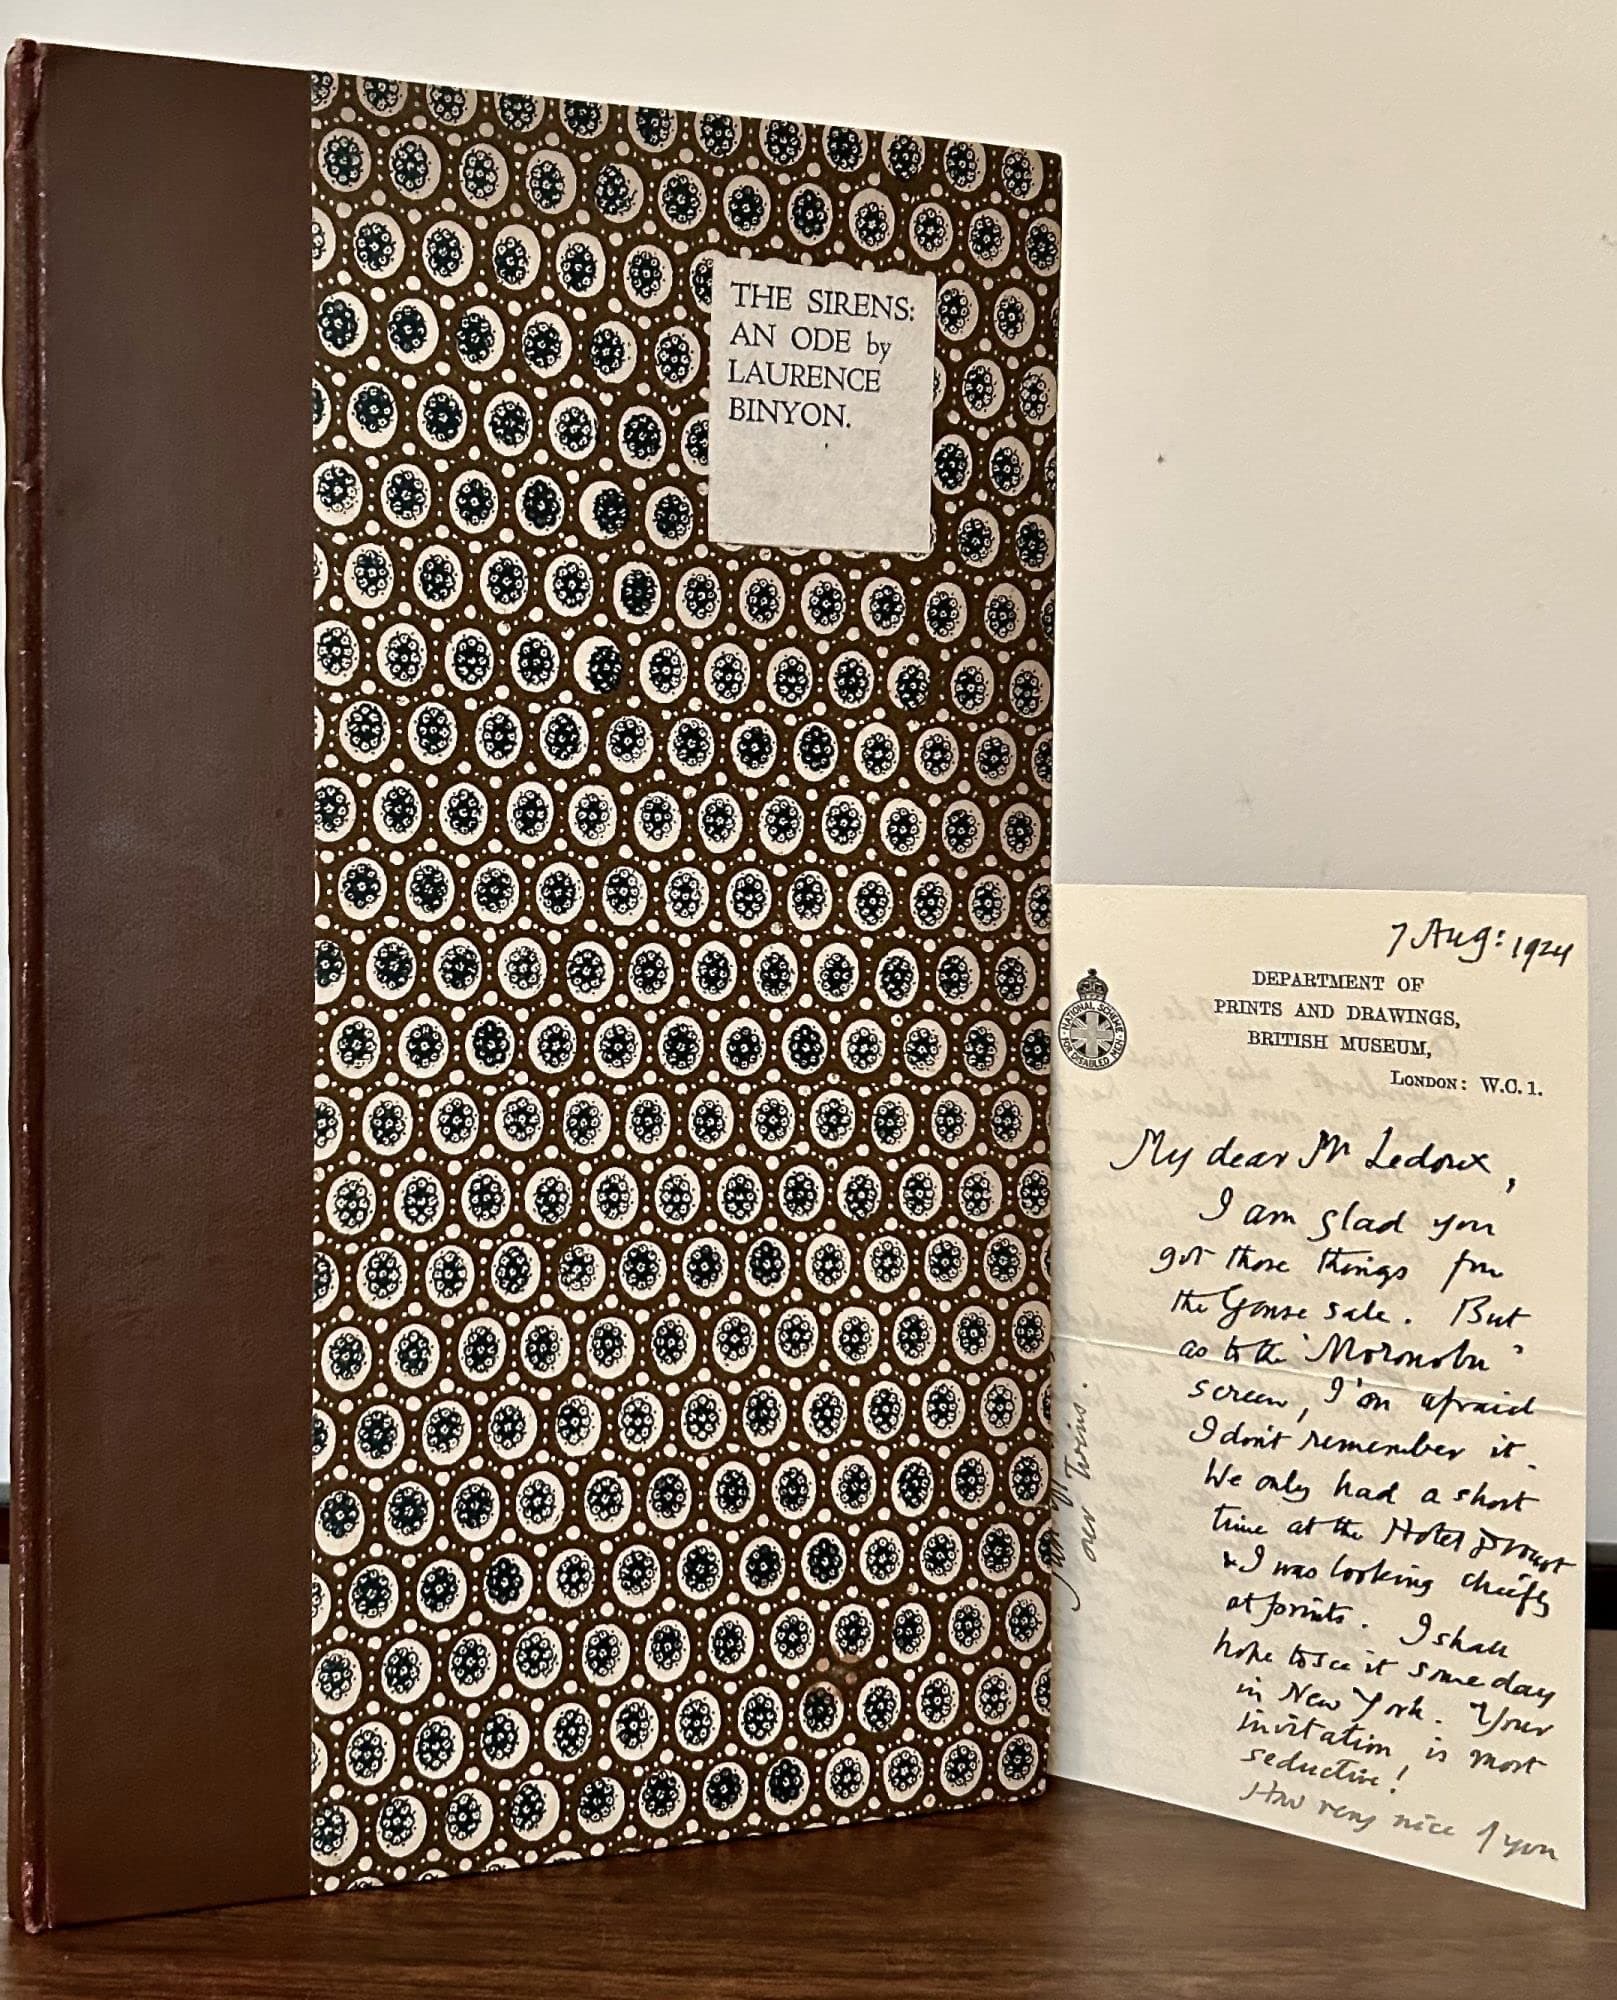 THE SIRENS:
AN ODE by
LAURENCE
BINYON.
7 Aug: 1924
NATIONAL SCHEME
FOR DISABLED MEN
DEPARTMENT OF
PRINTS AND DRAWINGS,
BRITISH MUSEUM,
LONDON: W.C.1.
My dear Mr Ledoux,
I am glad you
got those things from
the Gonse sale. But
as to the 'Moronobu'
screen, I'm afraid
I don't remember it.
We only had a short
time at the Hotel Drouot
& I was looking chiefly
at prints. I shall
hope to see it some day
in New York. Your
invitation is most
seductive!
How very nice of you
our Twins.